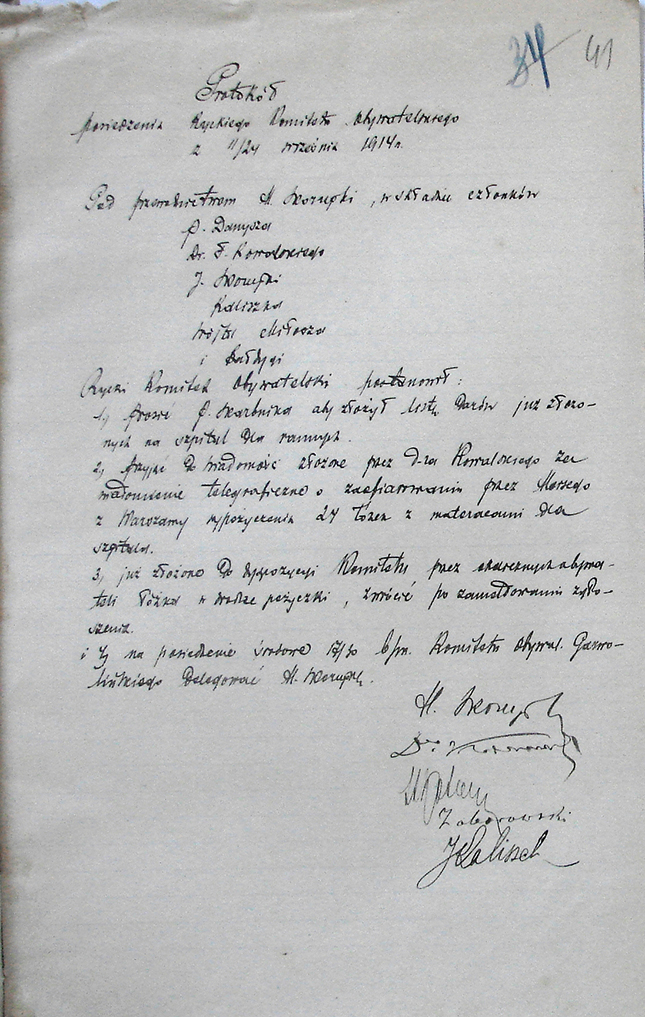 34 41
Protokół
posiedzenia Ryckiego Komitetu Obywatelskiego
z 11/24 września 1914 r.
Pod przewodnictwem M. , w składzie członków
P. Danysza
Dr. F. Kowalskiego
J.
Kaliszka
Wójta Miłosza
i Bałdygi
Rycki Komitet Obywatelski postanowił:
1, Prosić P. Skarbnika aby złożył listę Darów już złożo-
nych na szpital dla rannych.
2, Przyjąć do wiadomości złożone przez d-ra Kowalskiego za-
wiadomienie telegraficzne o zaofiarowaniu przez
z Warszawy wypożyczenia 24 łóżek z materacami dla
szpitala.
3, już złożone do dyspozycji Komitetu przez obywa-
teli łóżka w drodze pożyczki, zwrócić po zgło-
szenia.
i 4, na posiedzenie środowe 17/30 b/m. Komitetu Obywat. Garwo-
lińskiego delegować M.
M.
Dr.
Zaborowski
J Kalisch